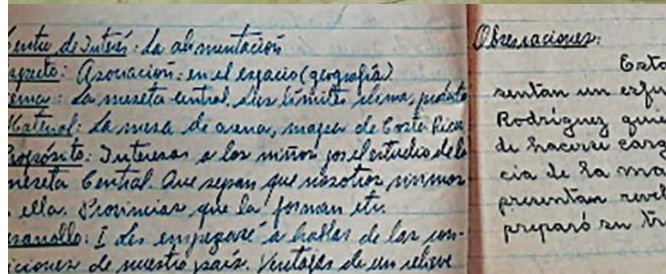 Centro de Interés: La alimentación
Aspecto: Asociación: en el espacio (geografía).
Tema: La meseta central, sus límites, clima, 
Material: La mesa de arena, mapa de Costa Rica
Propósito: Interesar a los niños por el estudio de la
meseta Central. Que sepan que nosotros vivimos
ella. Provincias que la forman etc.
I Les empezaré a hablar de las con-
diciones de nuestro país. Ventajas de un relieve
Observaciones:
Esto
sentan un esfu
Rodríguez quie
de hacerse carg
cia de la ma
presentan reve
preparó su tr